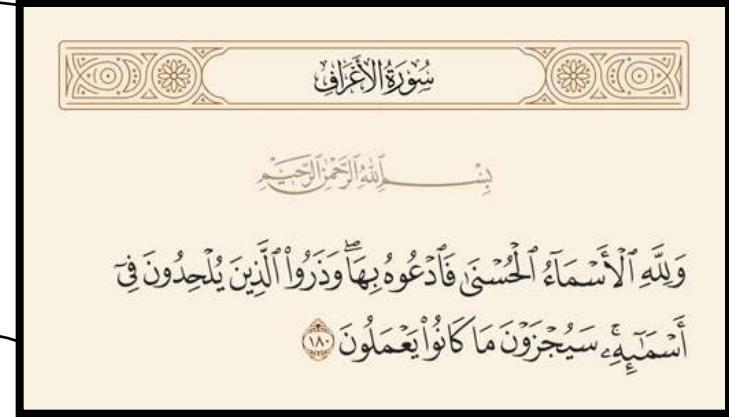 سُورَةُ الأَعْرَافِ
بِسْمِ ٱللَّهِ ٱلرَّحْمَٰنِ ٱلرَّحِيمِ
وَلِلَّهِ ٱلْأَسْمَآءُ ٱلْحُسْنَىٰ فَٱدْعُوهُ بِهَاۖ وَذَرُوا۟ ٱلَّذِينَ يُلْحِدُونَ فِىٓ
أَسْمَـٰٓئِهِۦۚ سَيُجْزَوْنَ مَا كَانُوا۟ يَعْمَلُونَ ١٨٠